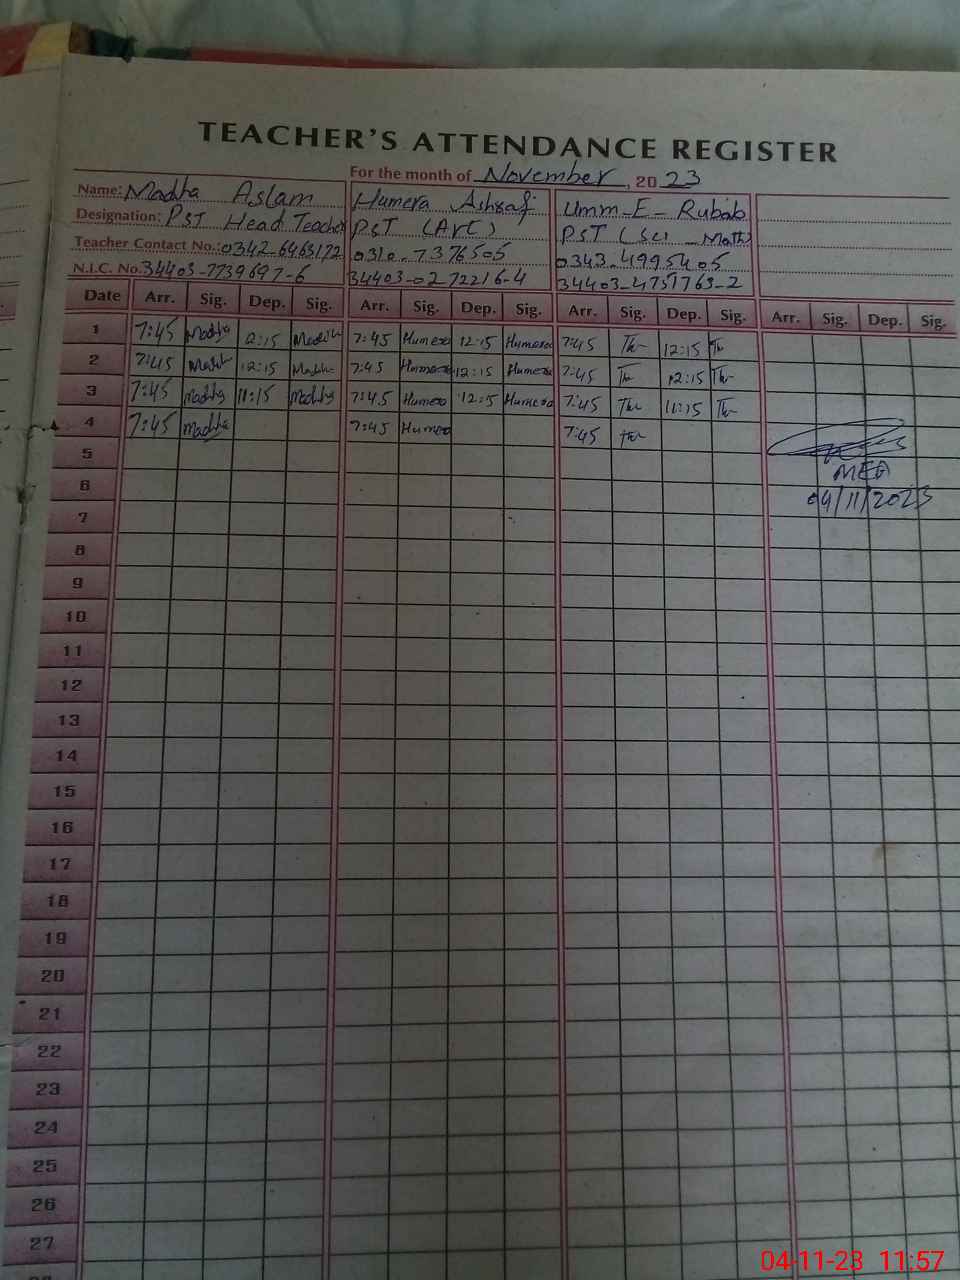 TEACHER'S ATTENDANCE REGISTER
For the month of November, 2023
Name: Madiha Aslam Humera Ashraf Umm-E-Rubab
Designation: PST Head Teacher PST (Art) PST (Sci-Math)
Teacher Contact No.: 0342-6463172 0310-7376505 0343-4995405
N.I.C. No. 34403-7739697-6 34403-0272216-4 34403-4751763-2
Date Arr. Sig. Dep. Sig. Arr. Sig. Dep. Sig. Arr. Sig. Dep. Sig. Arr. Sig. Dep. Sig.
1 7:45 Madiha 12:15 Madiha 7:45 Humera 12:15 Humera 7:45 12:15
2 7:45 Madiha 12:15 Madiha 7:45 Humera 12:15 Humera 7:45 12:15
3 7:45 Madiha 11:15 Madiha 7:45 Humera 12:15 Humera 7:45 11:15
4 7:45 Madiha 7:45 Humera 7:45
5
MEA
6
04/11/2023
7
8
9
10
11
12
13
14
15
16
17
18
19
20
21
22
23
24
25
26
27
04-11-23 11:57